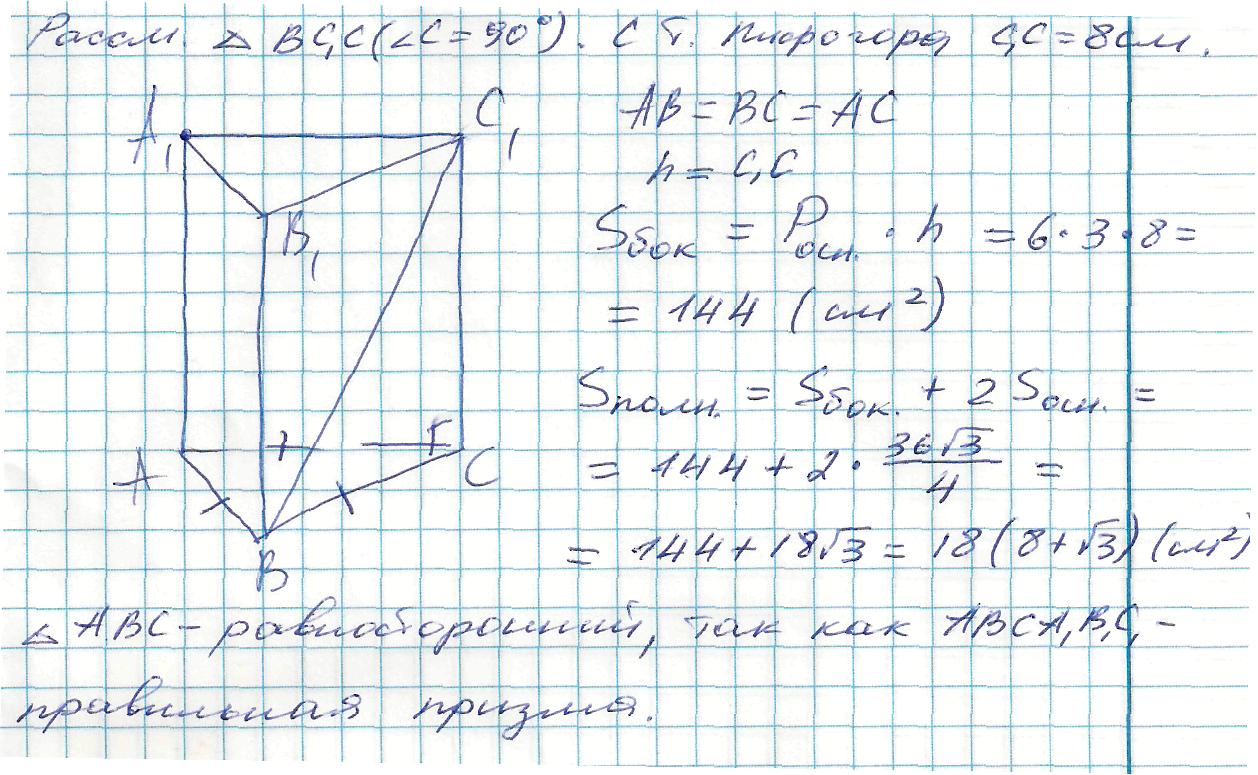 Рассм. △ BC₁C (∠C = 90°). С т. Пифагора C₁C = 8 см.
A₁
C₁
B₁
A
C
B
AB = BC = AC
h = C₁C
Sбок = Pосн. · h = 6 · 3 · 8 =
= 144 (см²)
Sполн. = Sбок. + 2 Sосн. =
= 144 + 2 · 36√3/4 =
= 144 + 18√3 = 18(8+√3) (см²)
△ ABC – равносторонний, так как ABCA₁B₁C₁ –
правильная призма.